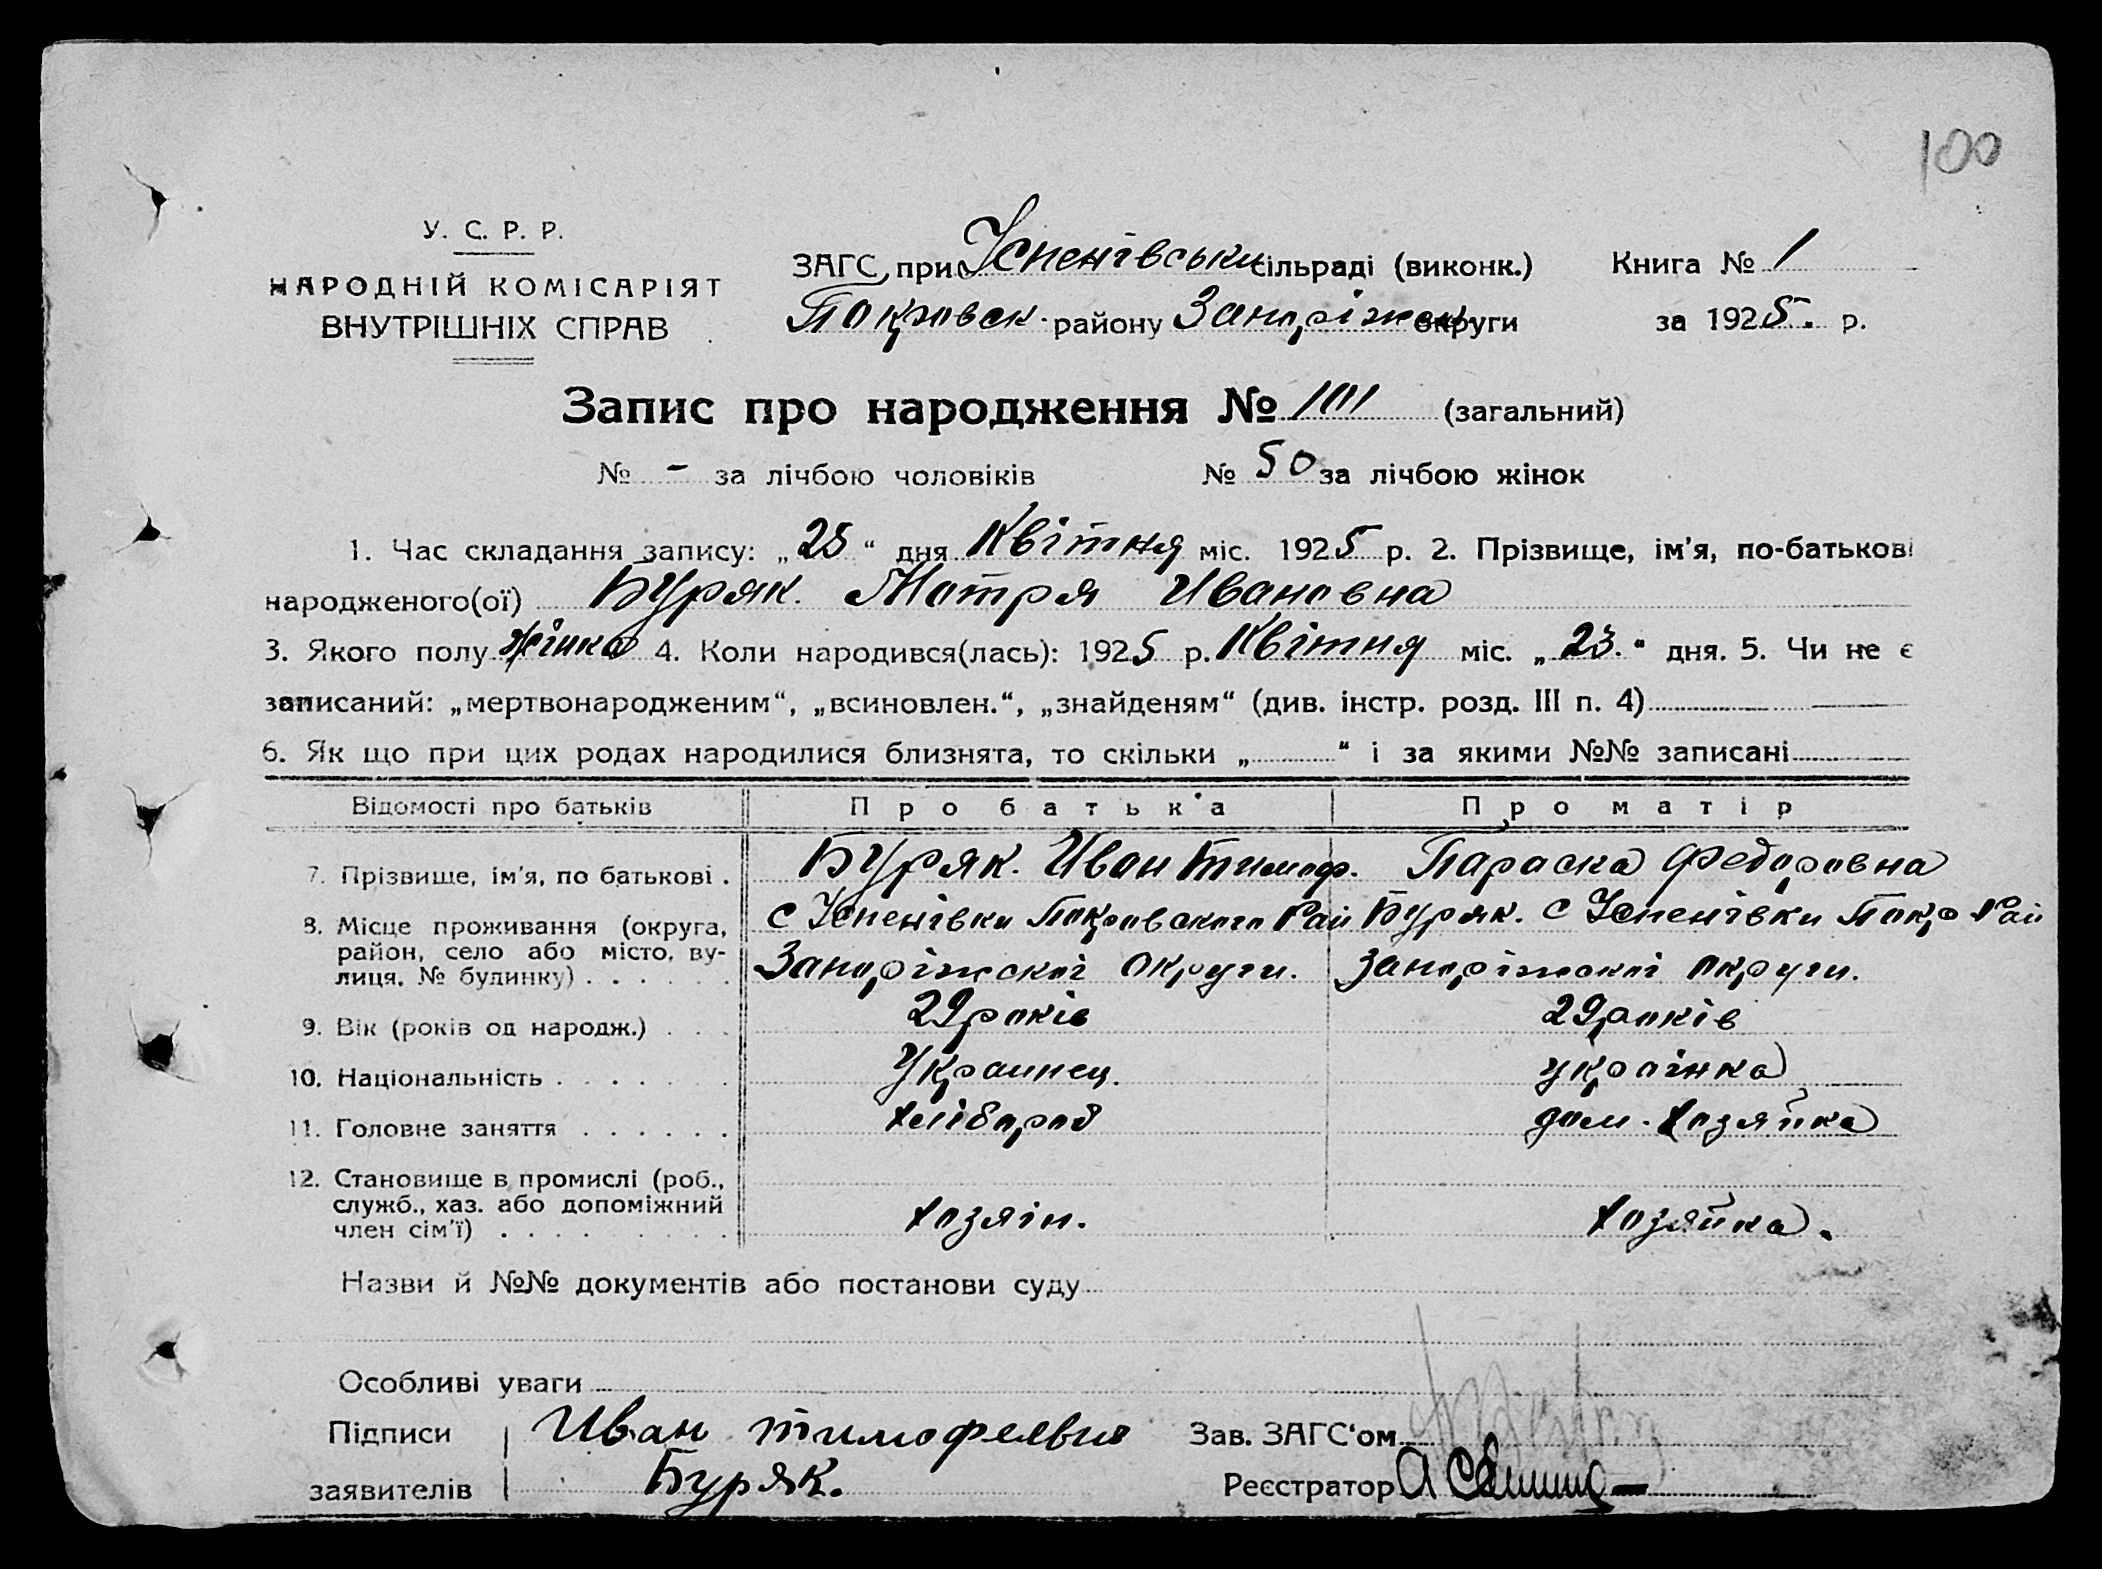 100
У. С. Р. Р.
НАРОДНІЙ КОМІСАРІЯТ
ВНУТРІШНІХ СПРАВ
ЗАГС при Успенівськи сільраді (виконк.) Книга № 1
Покровск. району Запоріжск. округи за 1925. р.
Запис про народження № 101 (загальний)
№ - за лічбою чоловіків № 50 за лічбою жінок
1. Час складання запису: „25“ дня Квітня міс. 1925 р. 2. Прізвище, ім'я, по-батькові
народженого(ої) Буряк. Мотря Ивановна
3. Якого полу жінка 4. Коли народився(лась): 1925 р. Квітня міс. „23.“ дня. 5. Чи не є
записаний: „мертвонародженим“, „всиновлен.“, „знайденям“ (див. інстр. розд. III п. 4)
6. Як що при цих родах народилися близнята, то скільки „ “ і за якими №№ записані
Відомості про батьків Про батька Про матір
7. Прізвище, ім'я, по батькові . Буряк. Иван Тимоф. Параска Федоровна
8. Місце проживання (округа, с Успенівки Покровского Рай Буряк. с Успенівки Покр Рай
район, село або місто, ву-
лиця, № будинку) . . . . . . Запоріжскої округи. Запоріжскої округи.
9. Вік (років од народж.) . . . 29 років 29 років
10. Національність . . . . . . . Украинец. українка
11. Головне заняття . . . . . . хлібороб дом. хозяйка
12. Становище в промислі (роб.,
служб., хаз. або допоміжний
член сім'ї) . . . . . . . . . хозяін. хозяйка.
Назви й №№ документів або постанови суду
Особливі уваги
Підписи Иван Тимофеевич Зав. ЗАГС'ом
заявителів Буряк. Реєстратор А